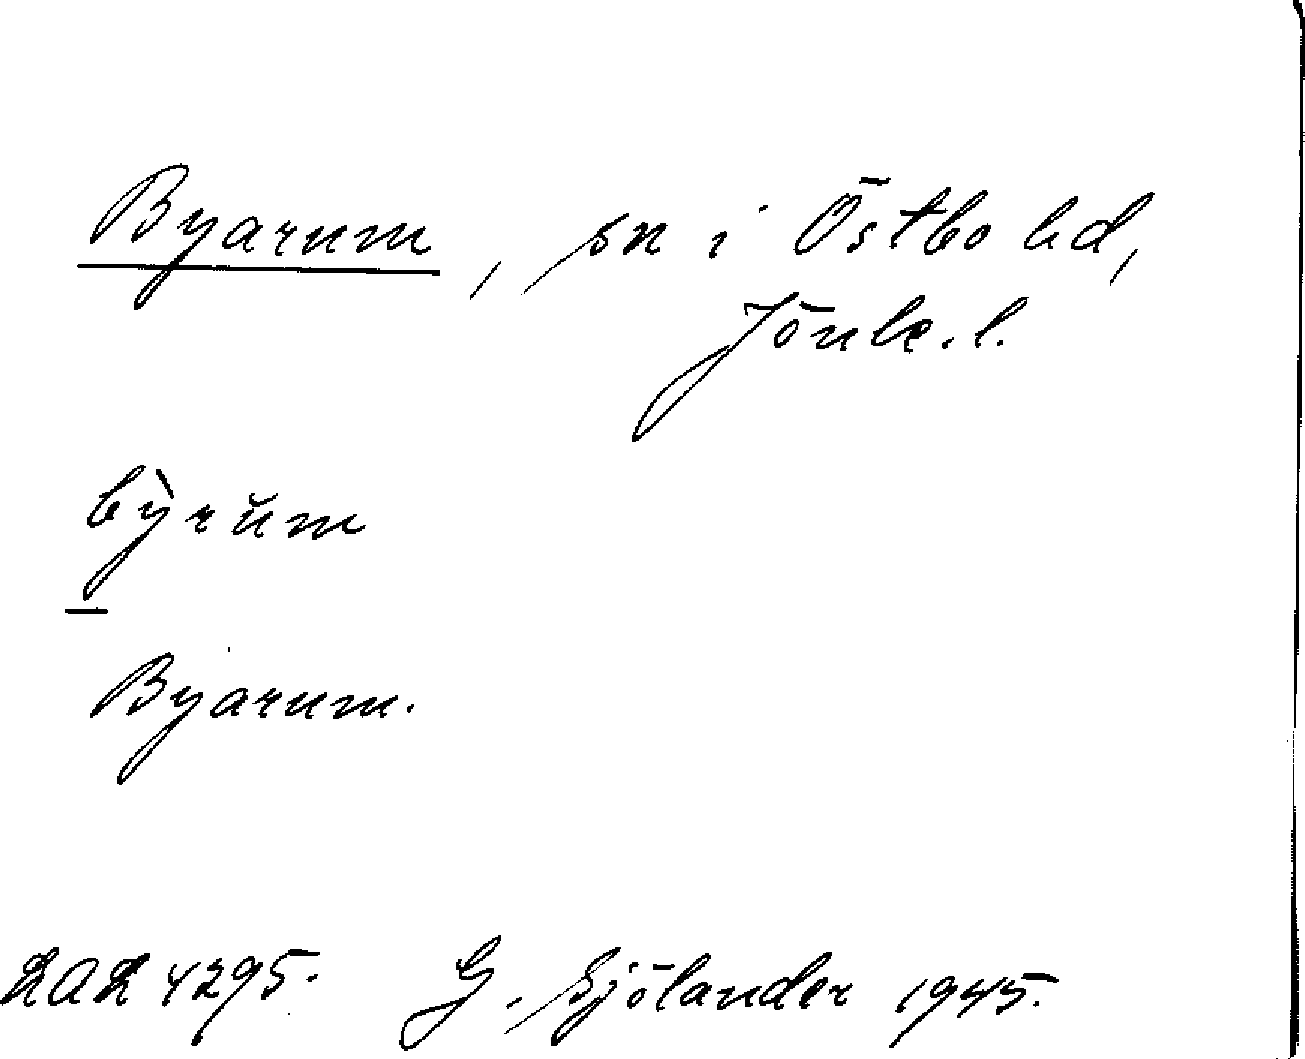 Byarum, sn i Östbo hd,
Jönk. l.
bỳrŭm
Byarum.
LAL 4295. G. Sjölander 1945.